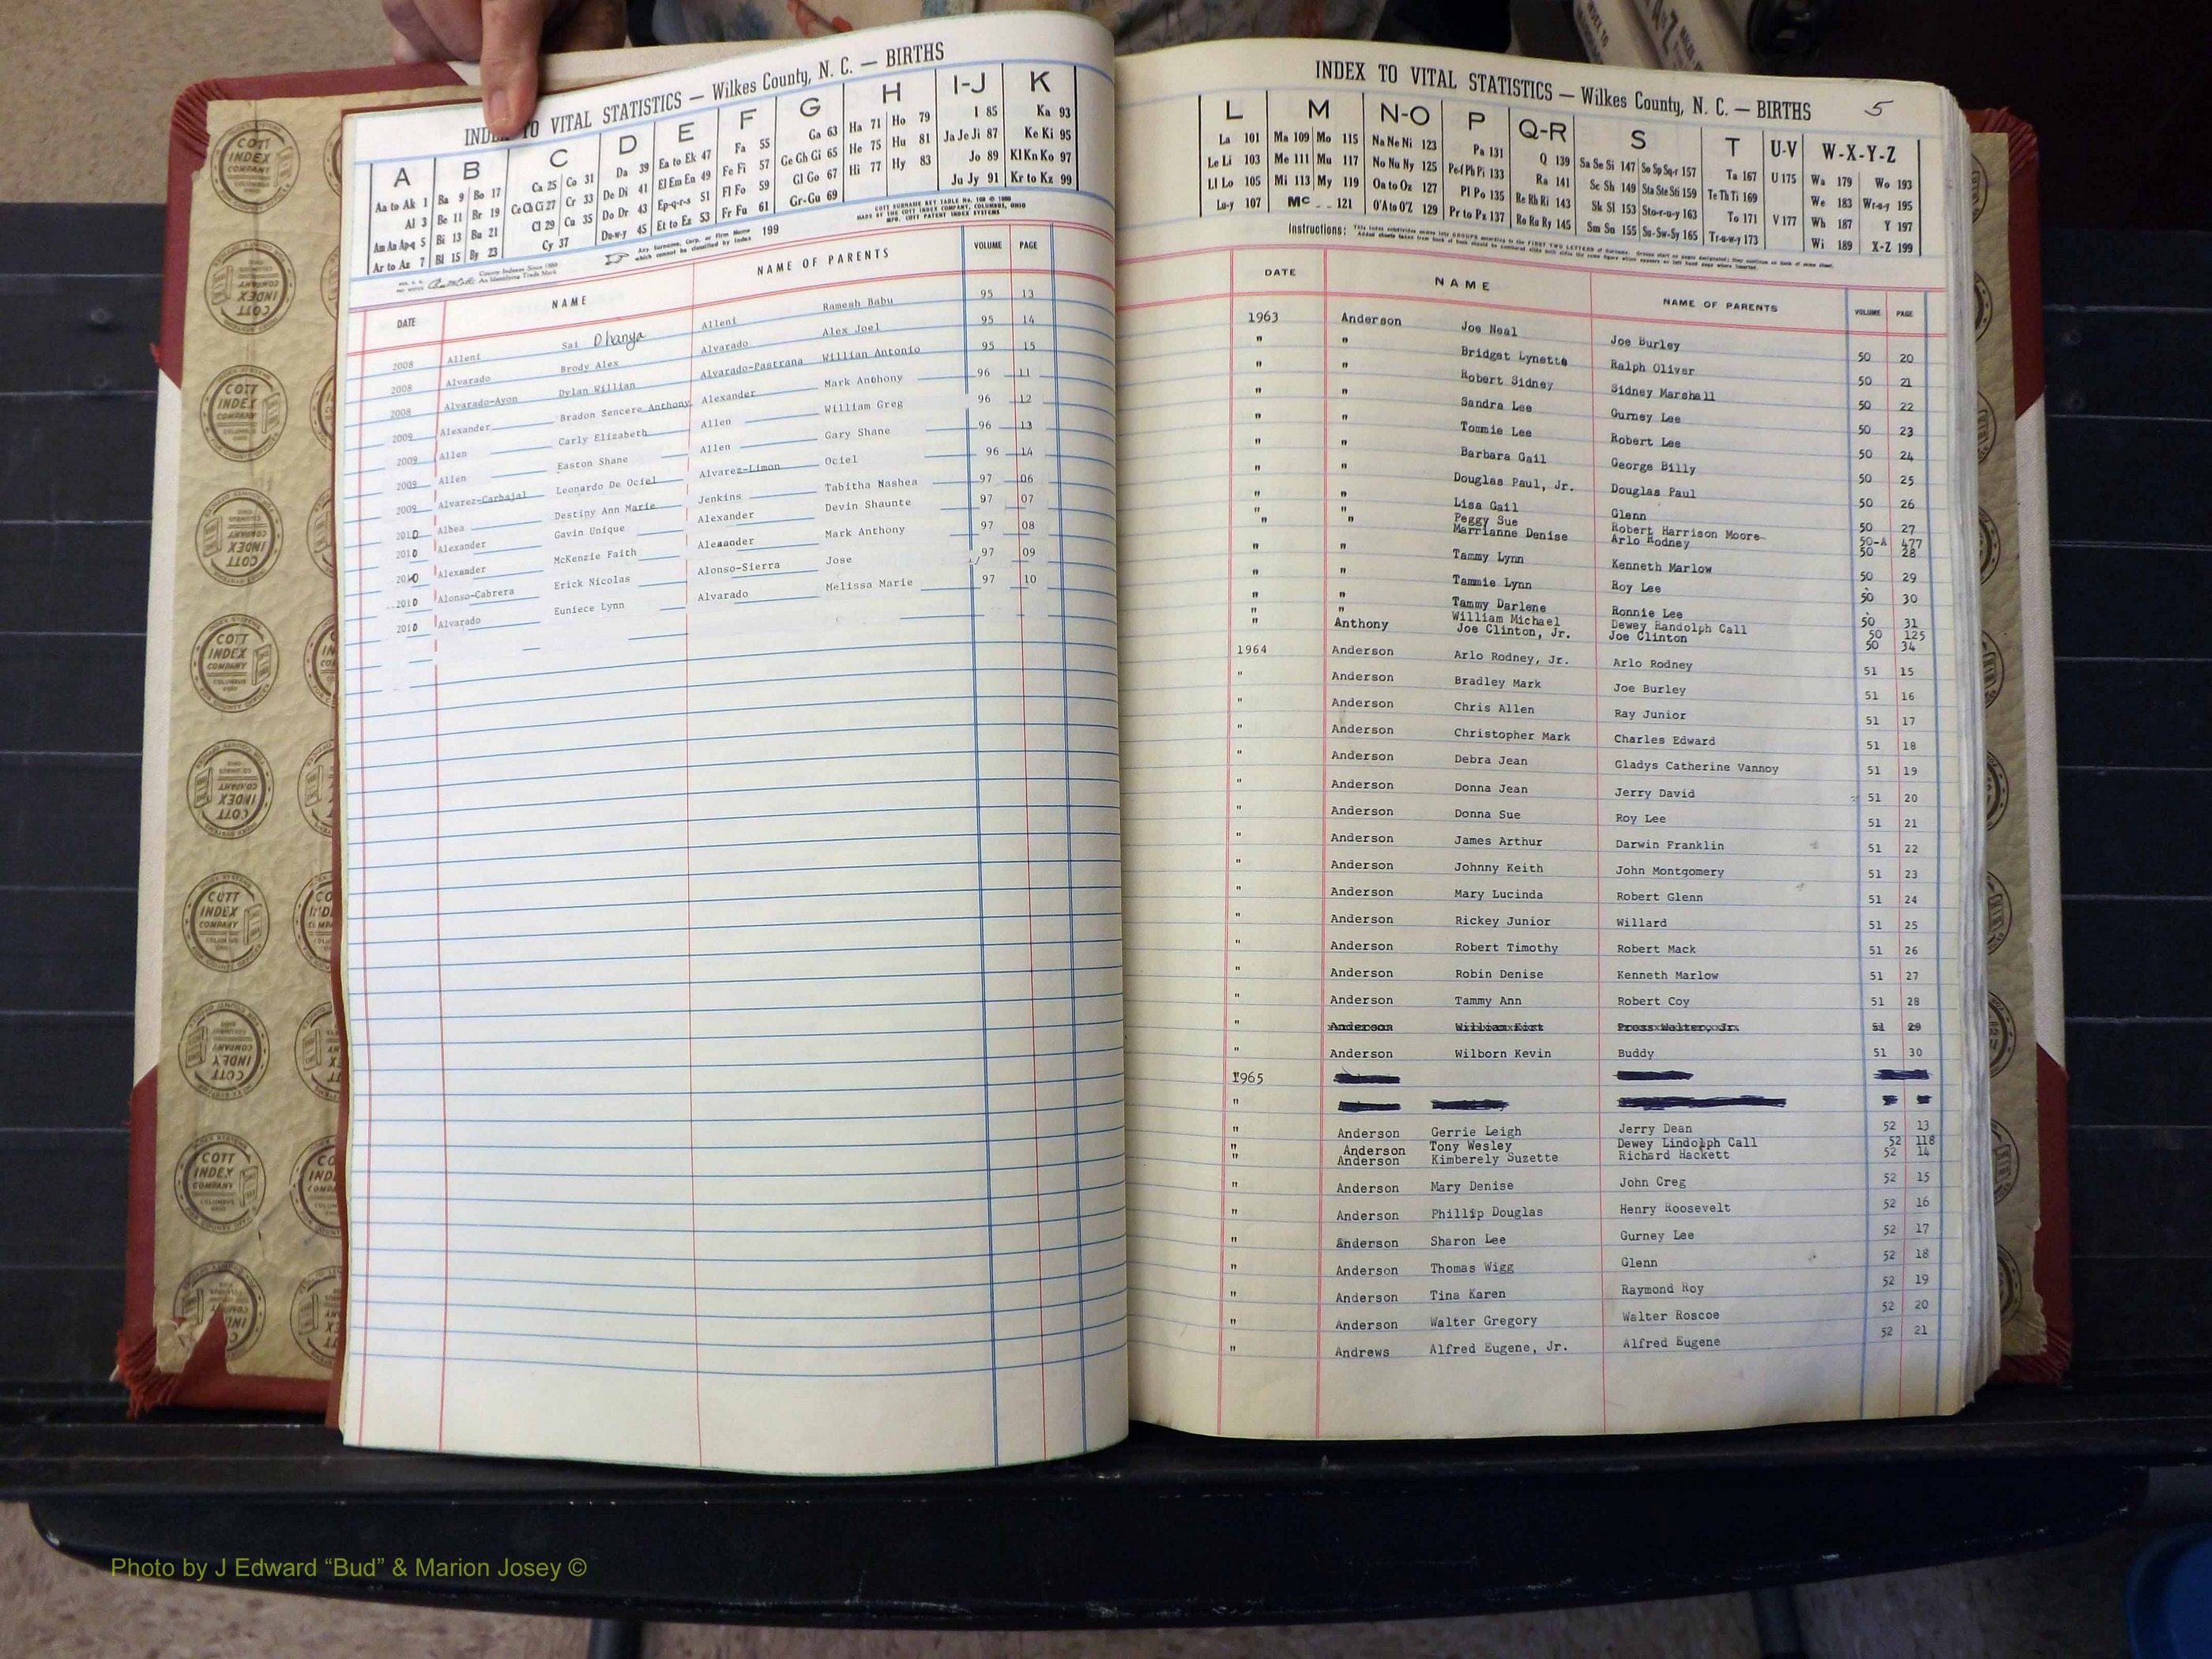 INDEX TO VITAL STATISTICS — Wilkes County, N. C. — BIRTHS
A B C D E F G H I-J K
Aa to Ak 1 Ba 9 Bo 17 Ca 25 Co 31 Da 39 Ea to Ek 47 Fa 55 Ga 63 Ha 71 Ho 79 I 85 Ka 93
Al 3 Be 11 Br 19 Ce Ch Ci 27 Cr 33 De Di 41 El Em En 49 Fe Fi 57 Ge Gh Gi 65 He 75 Hu 81 Ja Je Ji 87 Ke Ki 95
Am An Ap-q 5 Bi 13 Bu 21 Cl 29 Cu 35 Do Dr 43 Ep-q-r-s 51 Fl Fo 59 Gl Go 67 Hi 77 Hy 83 Jo 89 Kl Kn Ko 97
Ar to Az 7 Bl 15 By 23 Cy 37 Du-w-y 45 Et to Ez 53 Fr Fu 61 Gr-Gu 69 Ju Jy 91 Kr to Kz 99
COTT SURNAME KEY TABLE No.
MADE BY THE COTT INDEX COMPANY, COLUMBUS, OHIO
MFG. COTT PATENT INDEX SYSTEMS
County Indexes Since 1888
An Identifying Trade Mark
Any Surname, Corp. or Firm Name which cannot be classified by Index 199
DATE NAME NAME OF PARENTS VOLUME PAGE
2008 Alleni Sai Dhanya Alleni Ramesh Babu 95 13
2008 Alvarado Brody Alex Alvarado Alex Joel 95 14
2008 Alvarado-Ayon Dylan Willian Alvarado-Pastrana Willian Antonio 95 15
2009 Alexander Bradon Sencere Anthony Alexander Mark Anthony 96 11
2009 Allen Carly Elizabeth Allen William Greg 96 12
2009 Allen Easton Shane Allen Gary Shane 96 13
2009 Alvarez-Carbajal Leonardo De Ociel Alvarez-Limon Ociel 96 14
2010 Albea Destiny Ann Marie Jenkins Tabitha Nashea 97 06
2010 Alexander Gavin Unique Alexander Devin Shaunte 97 07
2010 Alexander McKenzie Faith Alexander Mark Anthony 97 08
2010 Alonso-Cabrera Erick Nicolas Alonso-Sierra Jose 97 09
2010 Alvarado Euniece Lynn Alvarado Melissa Marie 97 10
INDEX TO VITAL STATISTICS — Wilkes County, N. C. — BIRTHS 5
L M N-O P Q-R S T U-V W-X-Y-Z
La 101 Ma 109 Mo 115 Na Ne Ni 123 Pa 131 Q 139 Sa Se Si 147 So Sp Sq-r 157 Ta 167 U 175 Wa 179 Wo 193
Le Li 103 Me 111 Mu 117 No Nu Ny 125 Pe-f Ph Pi 133 Ra 141 Sc Sh 149 Sta Ste Sti 159 Te Th Ti 169 We 183 Wr-u-y 195
Ll Lo 105 Mi 113 My 119 Oa to Oz 127 Pl Po 135 Re Rh Ri 143 Sk Sl 153 Sto-r-u-y 163 To 171 V 177 Wh 187 Y 197
Lu-y 107 Mc 121 O'A to O'Z 129 Pr to Pz 137 Ro Ru Ry 145 Sm Sn 155 Su-Sw-Sy 165 Tr-u-w-y 173 Wi 189 X-Z 199
Instructions:
DATE NAME NAME OF PARENTS VOLUME PAGE
1963 Anderson Joe Neal Joe Burley 50 20
" " Bridget Lynette Ralph Oliver 50 21
" " Robert Sidney Sidney Marshall 50 22
" " Sandra Lee Gurney Lee 50 23
" " Tommie Lee Robert Lee 50 24
" " Barbara Gail George Billy 50 25
" " Douglas Paul, Jr. Douglas Paul 50 26
" " Lisa Gail Glenn 50 27
" Peggy Sue Robert Harrison Moore 50-A 477
" " Marrianne Denise Arlo Rodney 50 28
" " Tammy Lynn Kenneth Marlow 50 29
" " Tammie Lynn Roy Lee 50 30
" " Tammy Darlene Ronnie Lee 50 31
" " William Michael Dewey Randolph Call 50 125
" Anthony Joe Clinton, Jr. Joe Clinton 50 34
1964 Anderson Arlo Rodney, Jr. Arlo Rodney 51 15
" Anderson Bradley Mark Joe Burley 51 16
" Anderson Chris Allen Ray Junior 51 17
" Anderson Christopher Mark Charles Edward 51 18
" Anderson Debra Jean Gladys Catherine Vannoy 51 19
" Anderson Donna Jean Jerry David 51 20
" Anderson Donna Sue Roy Lee 51 21
" Anderson James Arthur Darwin Franklin 51 22
" Anderson Johnny Keith John Montgomery 51 23
" Anderson Mary Lucinda Robert Glenn 51 24
" Anderson Rickey Junior Willard 51 25
" Anderson Robert Timothy Robert Mack 51 26
" Anderson Robin Denise Kenneth Marlow 51 27
" Anderson Tammy Ann Robert Coy 51 28
" Anderson William 51 29
" Anderson Wilborn Kevin Buddy 51 30
1965
"
" Anderson Gerrie Leigh Jerry Dean 52 13
" Anderson Tony Wesley Dewey Lindolph Call 52 118
" Anderson Kimberely Suzette Richard Hackett 52 14
" Anderson Mary Denise John Creg 52 15
" Anderson Phillip Douglas Henry Roosevelt 52 16
" Anderson Sharon Lee Gurney Lee 52 17
" Anderson Thomas Wigg Glenn 52 18
" Anderson Tina Karen Raymond Roy 52 19
" Anderson Walter Gregory Walter Roscoe 52 20
" Andrews Alfred Eugene, Jr. Alfred Eugene 52 21
COTT INDEX COMPANY
Photo by J Edward “Bud” & Marion Josey ©